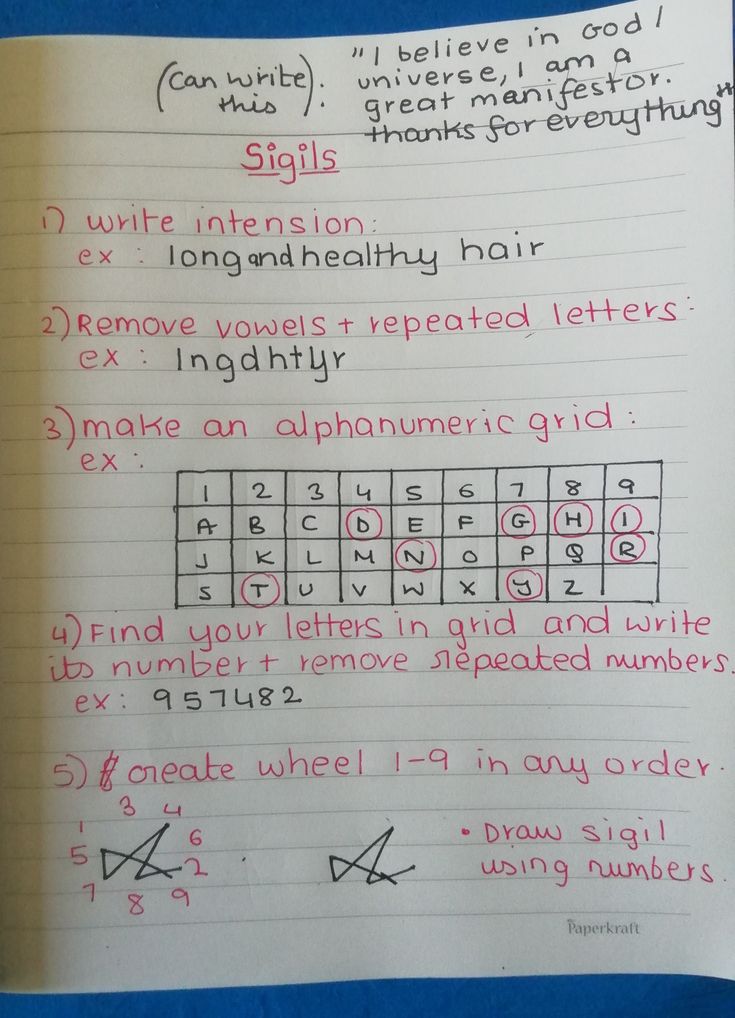 "I believe in God/
(can write this). universe, I am a
great manifestor.
thanks for everything"
Sigils
1) write intension:
ex : long and healthy hair
2) Remove vowels + repeated letters:
ex : lngdhtyr
3) make an alphanumeric grid :
ex :
1 2 3 4 5 6 7 8 9
A B C D E F G H I
J K L M N O P Q R
S T U V W X Y Z
4) Find your letters in grid and write
its number + remove repeated numbers.
ex : 957482
5) create wheel 1-9 in any order.
3 4
1 6
5 2
7 8 9
• Draw sigil
using numbers.
Paperkraft